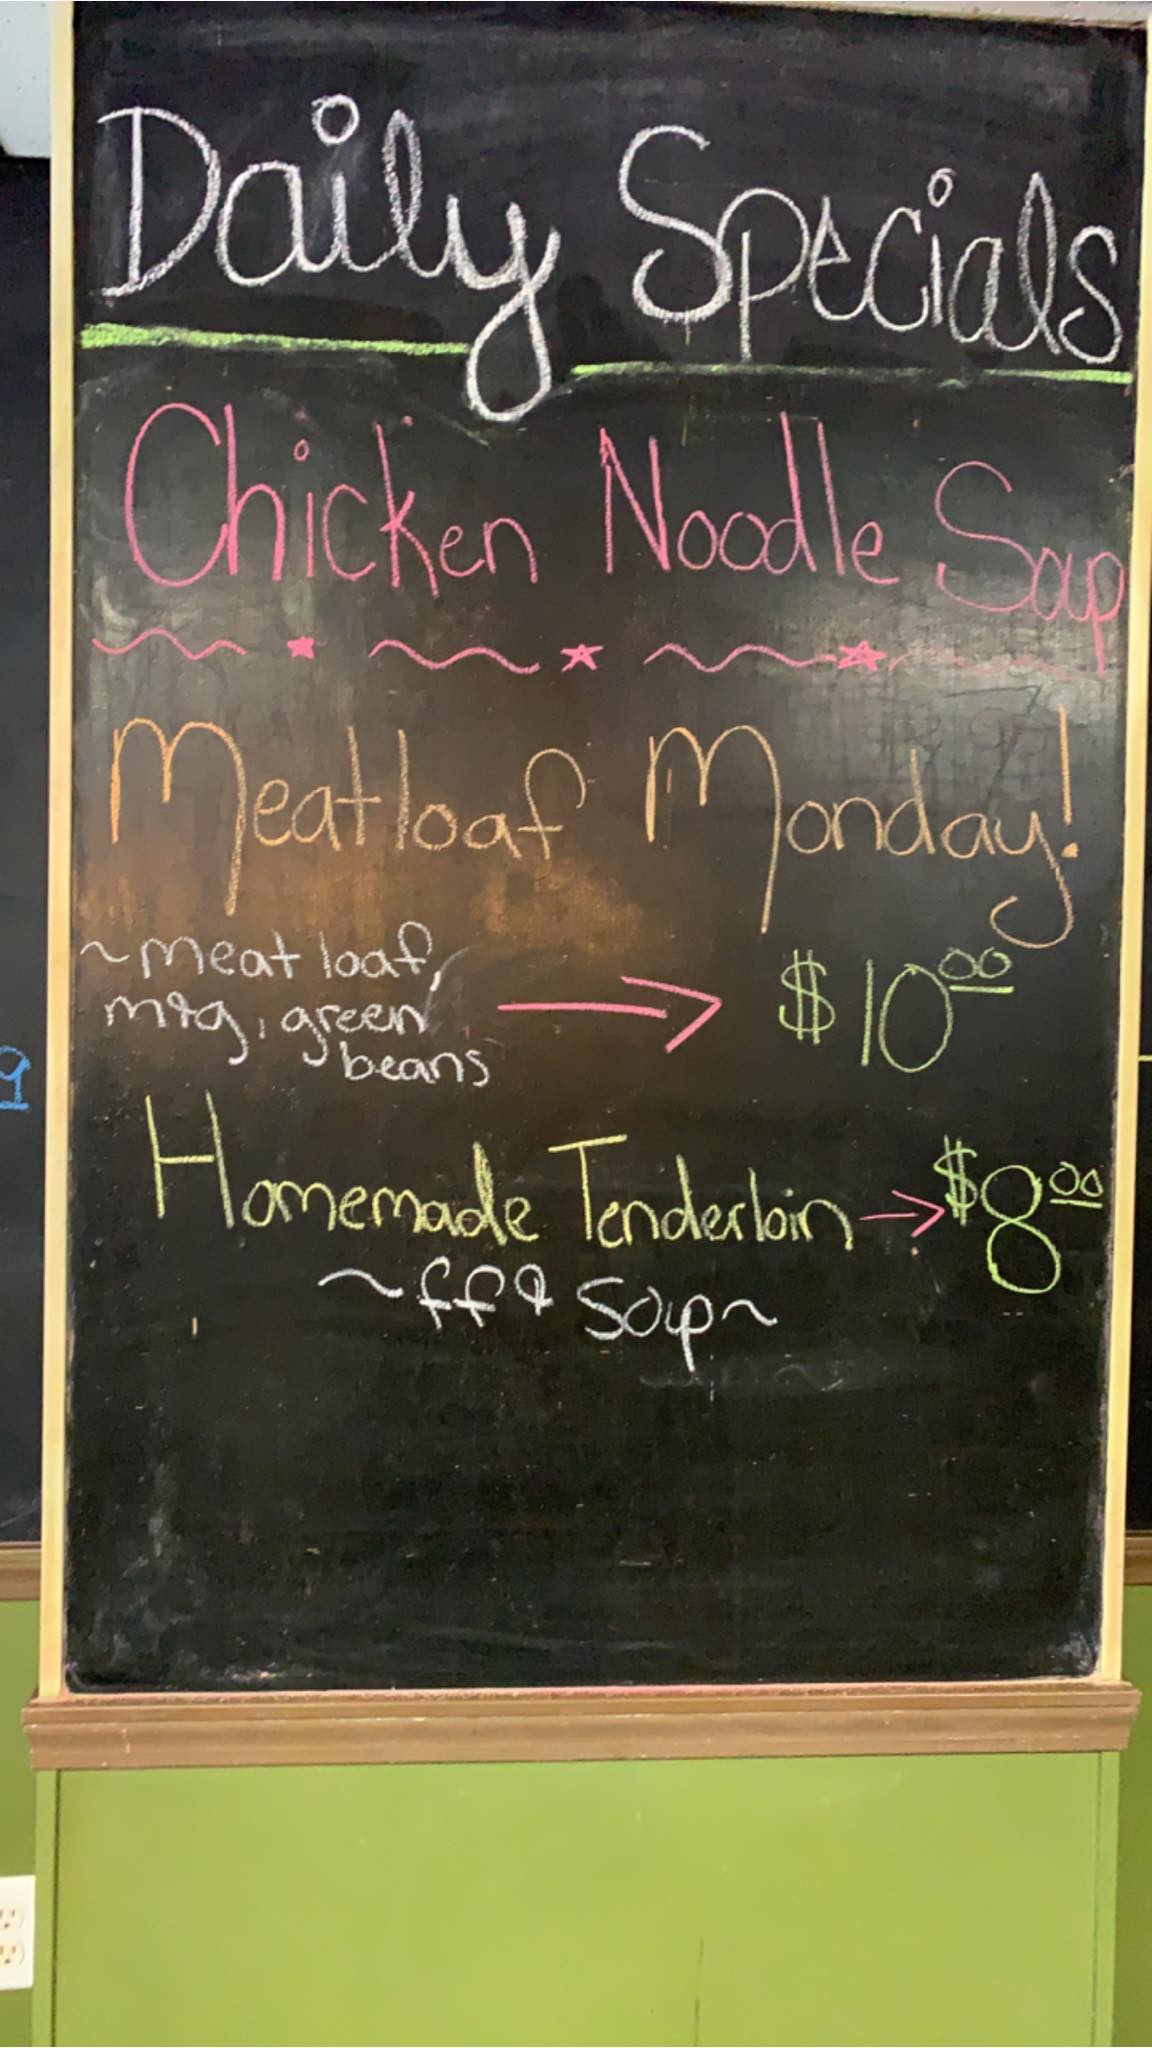 Daily Specials
Chicken Noodle Soup
Meatloaf Monday!
~meat loaf,
m&g, green
beans
$10.00
Homemade Tenderloin $8.00
~ff & Soup~
9